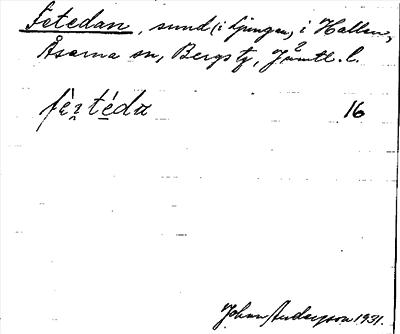 Fetedan, sund (i Ljungan, i Hallen,
Åsarna sn, Bergs tg, Jämtl. l.
16
Johan Anderson 1931.